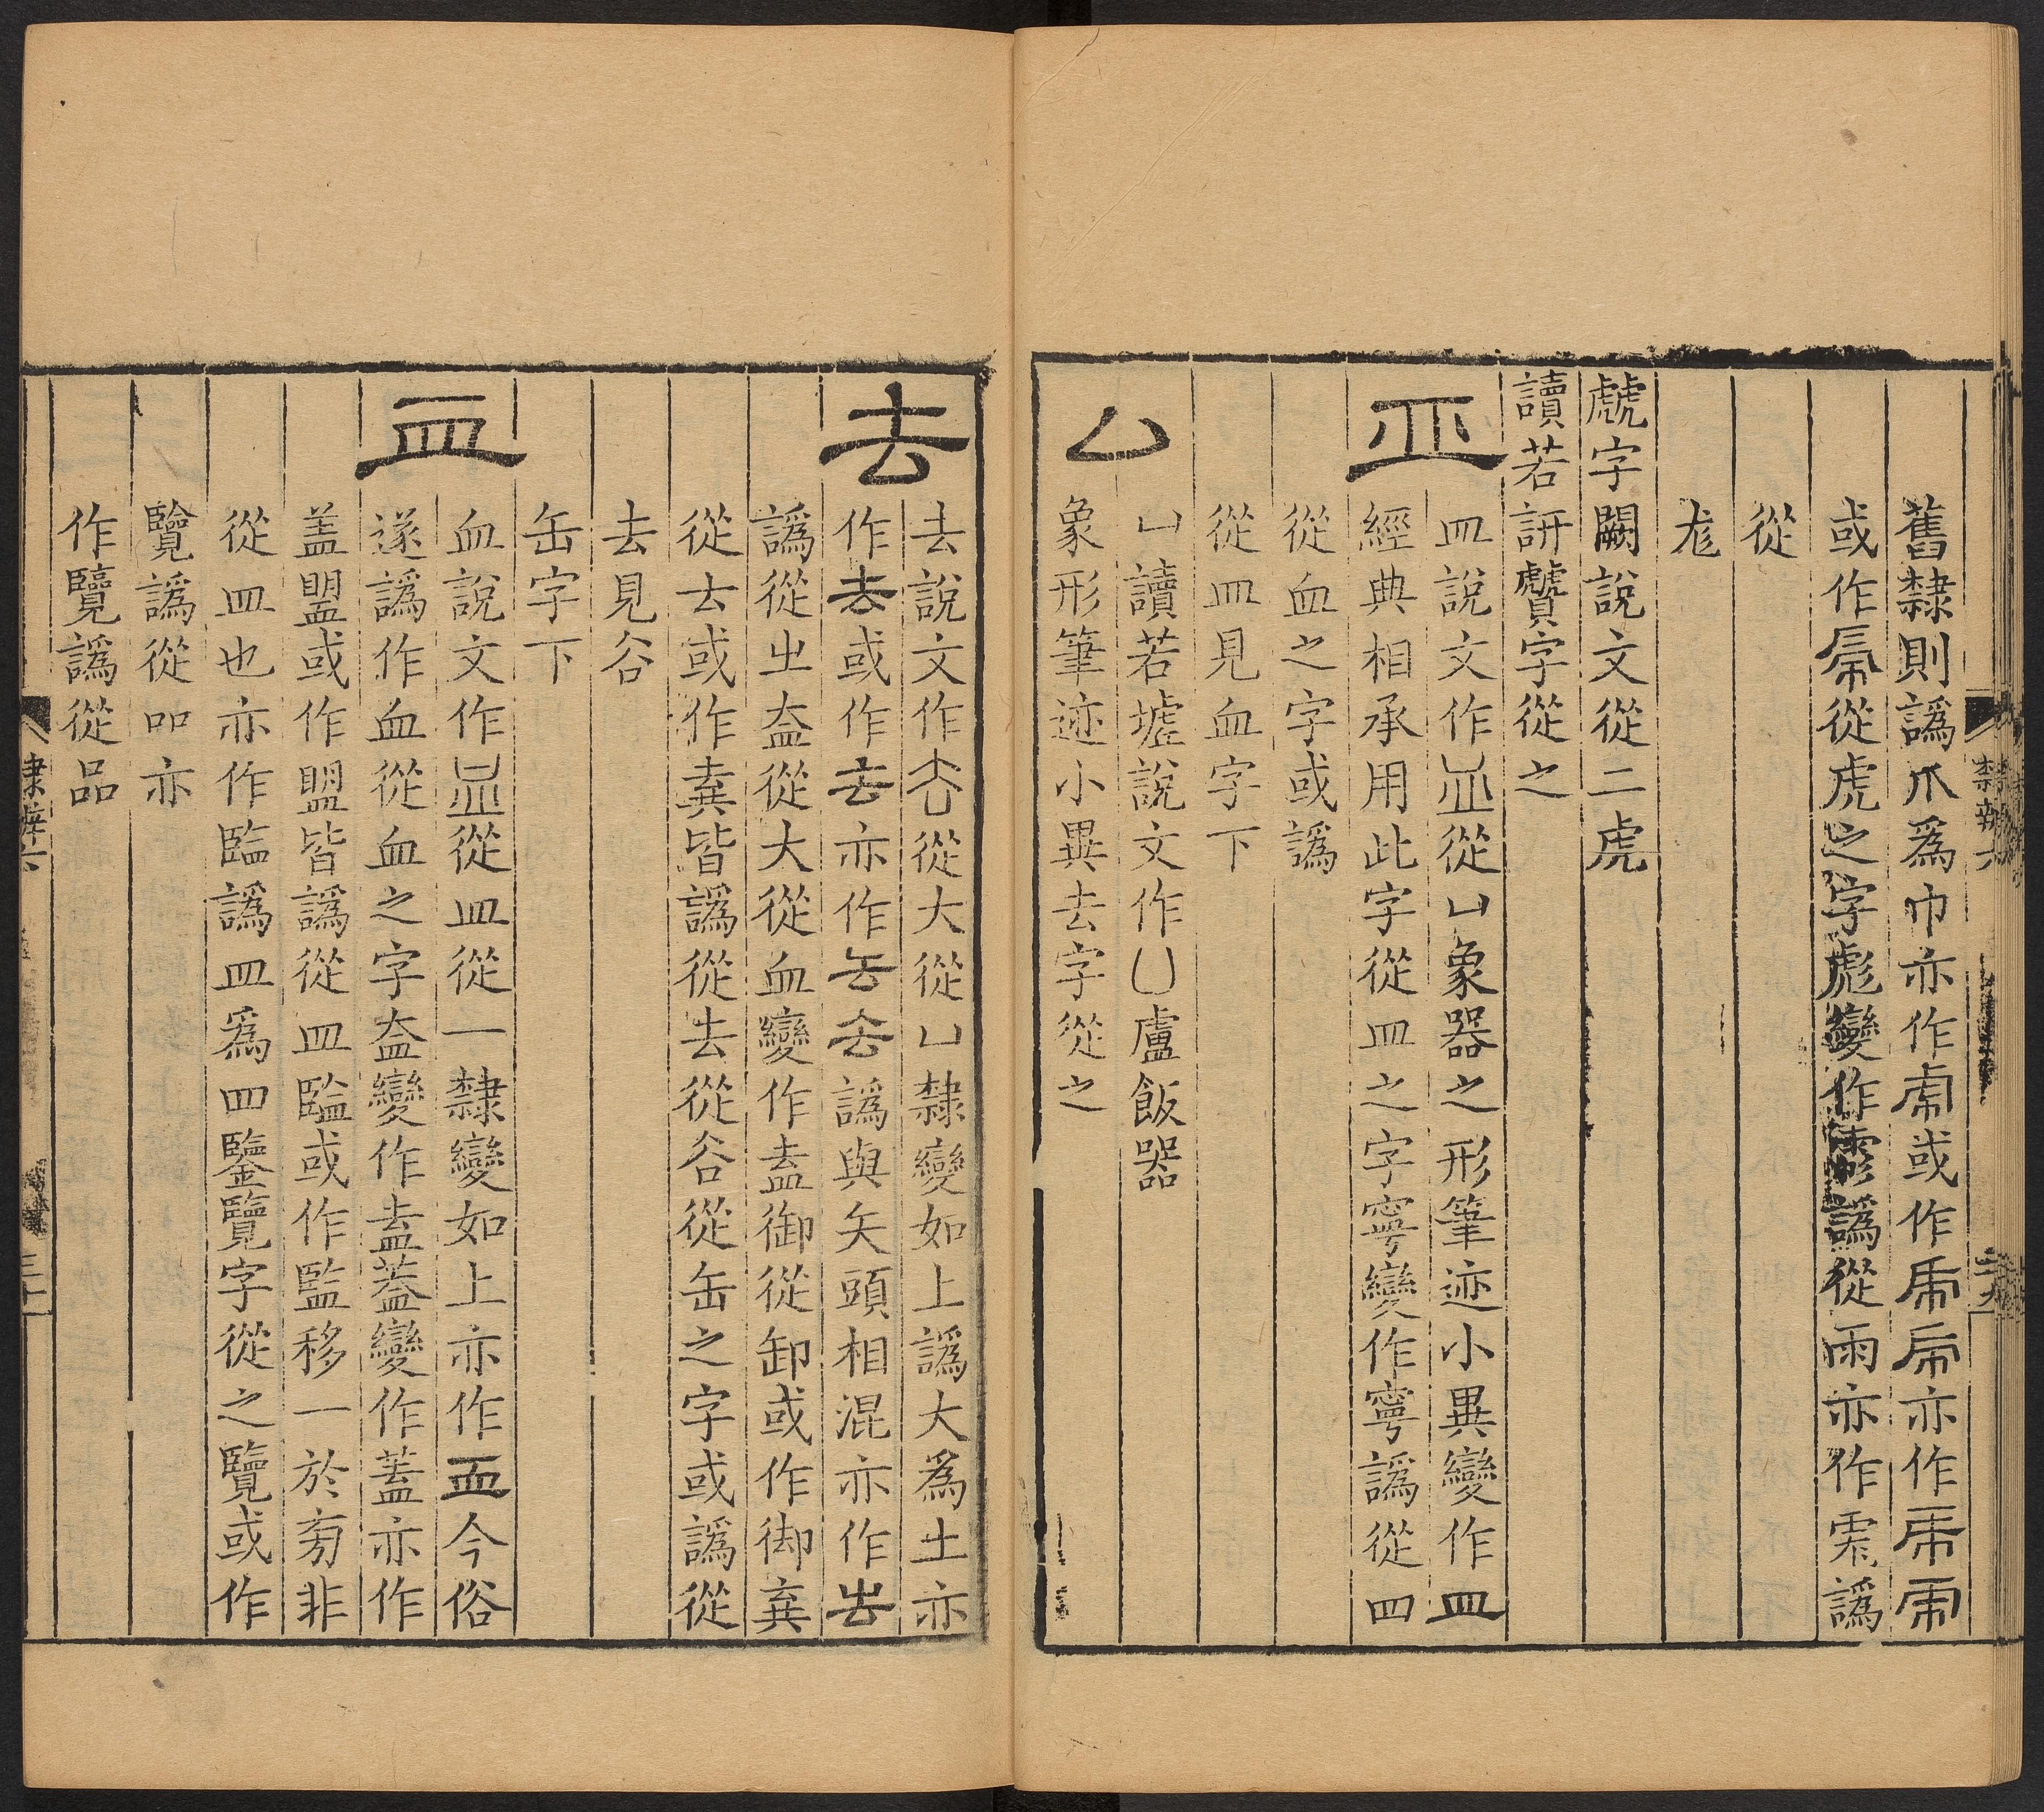 舊隸則譌爪爲巾亦作虏或作亦作
或作從虎之字彪變作譌從雨亦作譌
從
尨
虤字闕說文從二虎
讀若訮贙字從之
皿
皿說文作從凵象器之形筆迹小異變作皿
經典相承用此字從皿之字寧變作寧譌從四
從血之字或譌
從皿見血字下
凵
凵讀若墟說文作凵盧飯器
象形筆迹小異去字從之
去
去說文作從大從凵隸變如上譌大爲土亦
作去或作去亦作譌與矢頭相混亦作
譌從㞢盇從大從血變作盍御從卸或作御棄
從𠫓或作皆譌從去從谷從缶之字或譌從
去見谷
缶字下
血
血說文作從皿從一隸變如上亦作今俗
遂譌作血從血之字盇變作盍葢變作蓋亦作
盖盟或作盟皆譌從皿監或作監移一於旁非
從皿也亦作臨譌皿爲四鑒覽字從之覽或作
覽譌從吅亦
作覽譌從品
隸辨六
三十